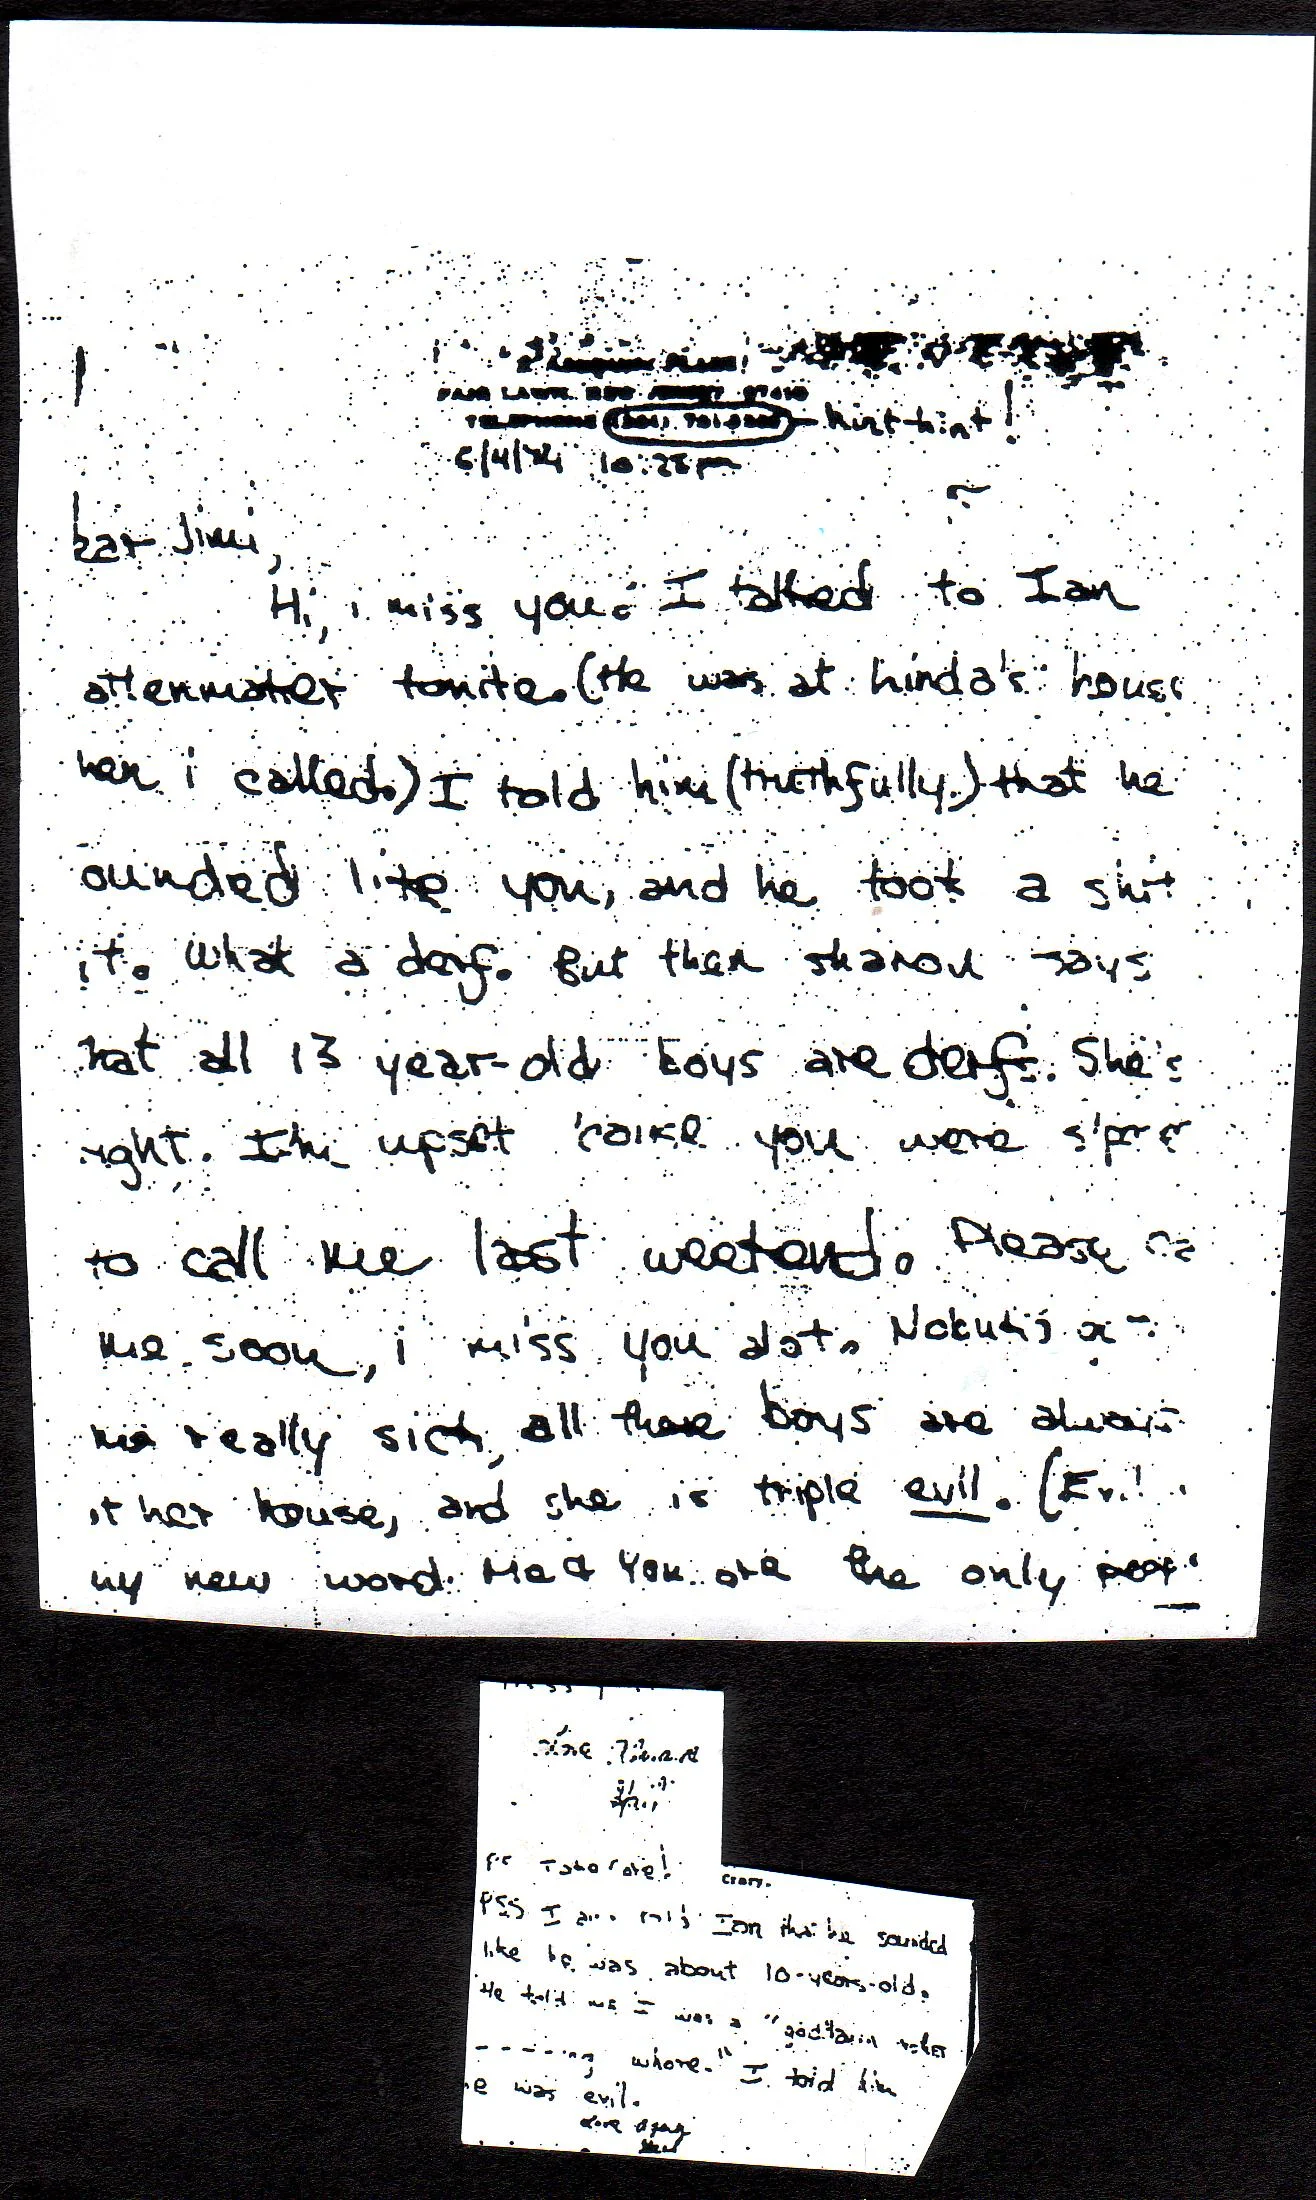 FAIR LAWN, NEW JERSEY 07410
TELEPHONE (201) hint hint!
6/4/74 10:28pm
ear Jimi,
Hi, i miss you. I talked to Ian
attenmater tonite. (He was at hinda's house
hen i called.) I told him (truthfully.) that he
ounded like you, and he took a shit
it. What a derf. But then sharon says
hat all 13 year-old boys are derfs. She's
ight. I'm upset 'cause you were
to call me last weekend. Please
me soon, i miss you alot.
me really sick, all these boys are always
at her house, and she is triple evil. (Evil
my new word. Me & you are the only
PS Take care!
PSS I also told Ian that he sounded
like he was about 10-years-old.
He told me I was a "goddamn
whore." I told him
e was evil.
Love again